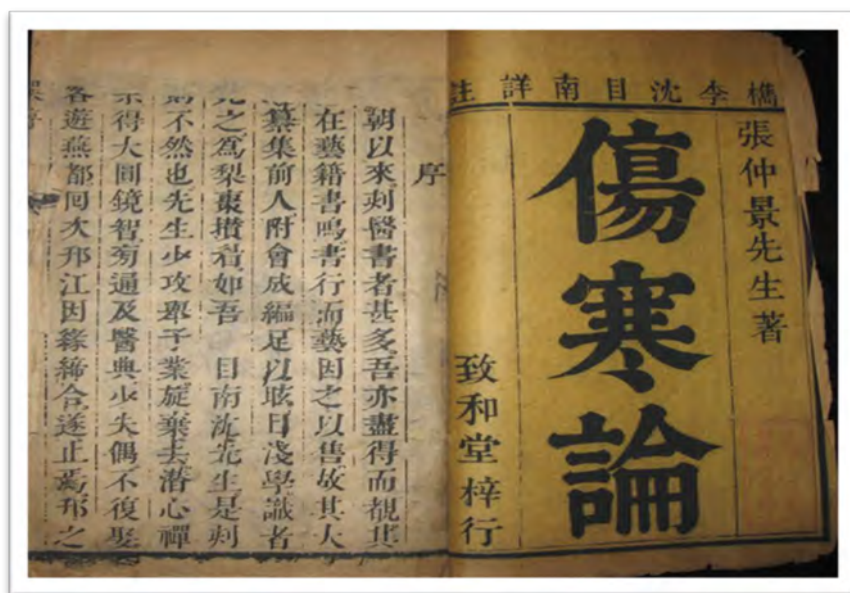 檇李沈目南詳註
張仲景先生著
傷寒論
致和堂梓行
序
朝以來刻醫書者甚多吾亦盡得而覩其
在藝籍書鳴書行而藝因之以售故其大
纂集前人附會成編足以眩目淺學識者
之爲梨棗攢眉如吾 目南沈先生是刻
則不然也先生少攻舉子業旋棄去潛心禪
宗得大圓鏡智旁通及醫典少失偶不復娶
客遊燕都囘次邗江因緣締合遂止焉邗之